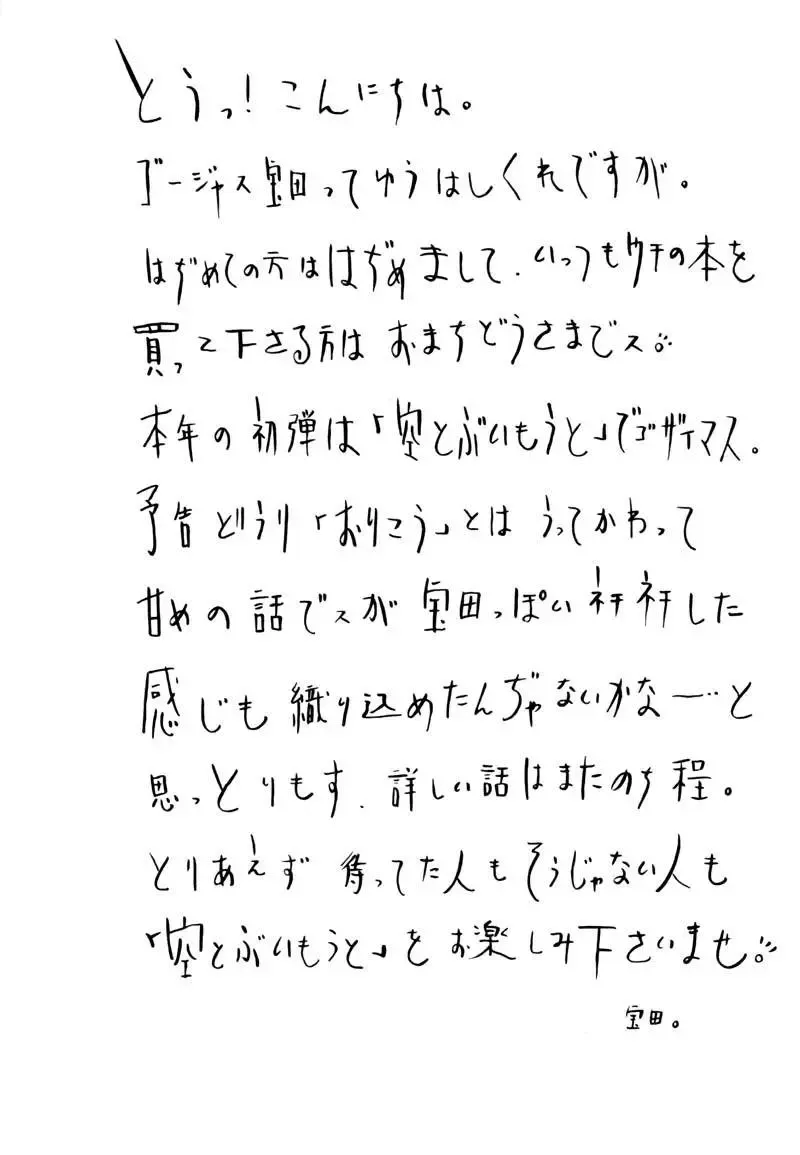 とうっ!こんにちは。
ゴージャス宝田ってゆうはしくれですが。
はじめての方ははじめまして、いっつもウチの本を
買って下さる方はおまちどうさまでス。
本年の初弾は「空とぶいもうと」でゴザイマス。
予告どうり「おりこう」とはうってかわって
甘めの話でスが宝田っぽいネチネチした
感じも織り込めたんぢゃないかなー…と
思っとりもす、詳しい話はまたのち程。
とりあえず待ってた人もそうじゃない人も
「空とぶいもうと」をお楽しみ下さいませ。
宝田。